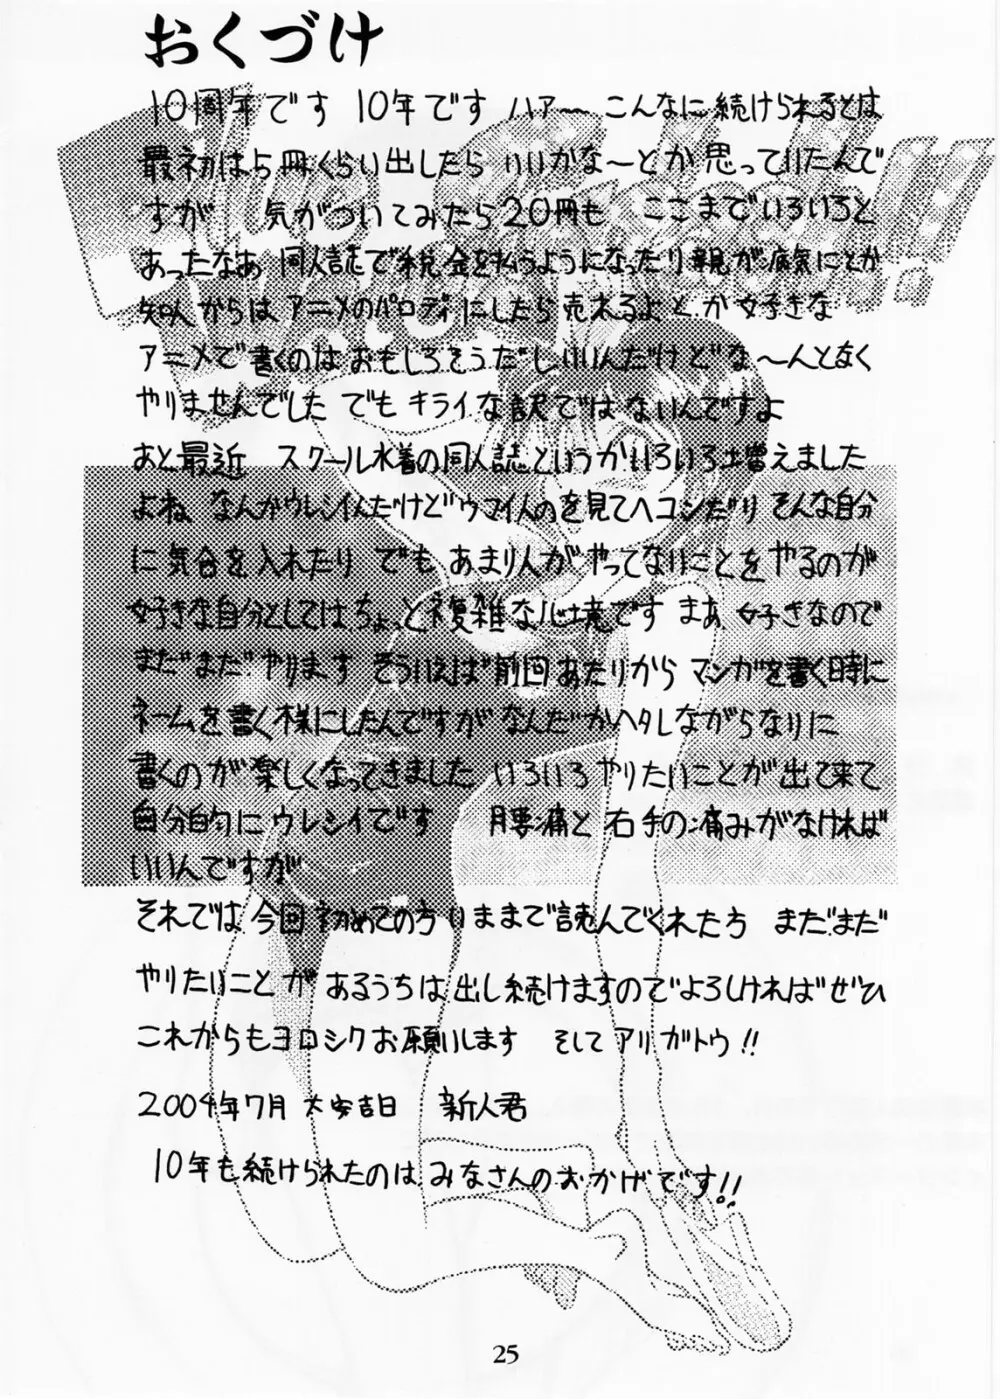 おくづけ
10周年です 10年です ハァ〜 こんなに続けられるとは
最初は5冊くらい出したら いいかな〜とか思っていたんで
すが 気がついてみたら20冊も ここまでいろいろと
あったなぁ 同人誌で税金を払うようになったり親が病気にとか
知人からは アニメのパロディにしたら売れるよとか 好きな
アニメで書くのはおもしろそうだしいいんだけどな〜んとなく
やりませんでした でも キライな訳ではないんですよ
あと最近 スクール水着の同人誌というかいろいろ増えました
よね なんかウレシイんだけどウマイ人のを見てヘコンだり そんな自分
に気合を入れたり でも あまり人がやってないことをやるのが
好きな自分としてはちょっと複雑な心境です まぁ 好きなので
まだまだ やります そういえば前回あたりから マンガを書く時に
ネームを書く様にしたんですがなんだかヘタしながらなりに
書くのが楽しくなってきました いろいろやりたいことが出て来て
自分的にウレシイです 腰痛と右手の痛みがなければ
いいんですが
それでは今回初めての方 いままで読んでくれた方 まだまだ
やりたいことが あるうちは出し続けますのでよろしければぜひ
これからもヨロシクお願いします そしてアリガトウ!!
2004年7月 大安吉日 新人君
10年も続けられたのはみなさんのおかげです!!
25